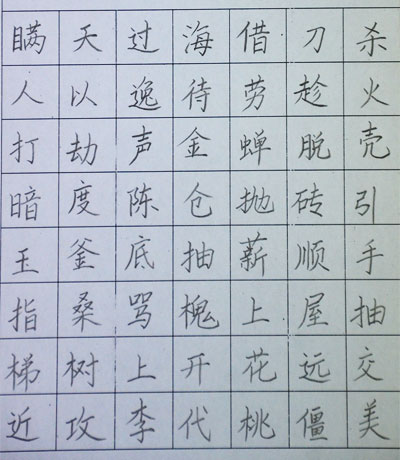 瞒天过海借刀杀
人以逸待劳趁火
打劫声金蝉脱壳
暗度陈仓抛砖引
玉釜底抽薪顺手
指桑骂槐上屋抽
梯树上开花远交
近攻李代桃僵美